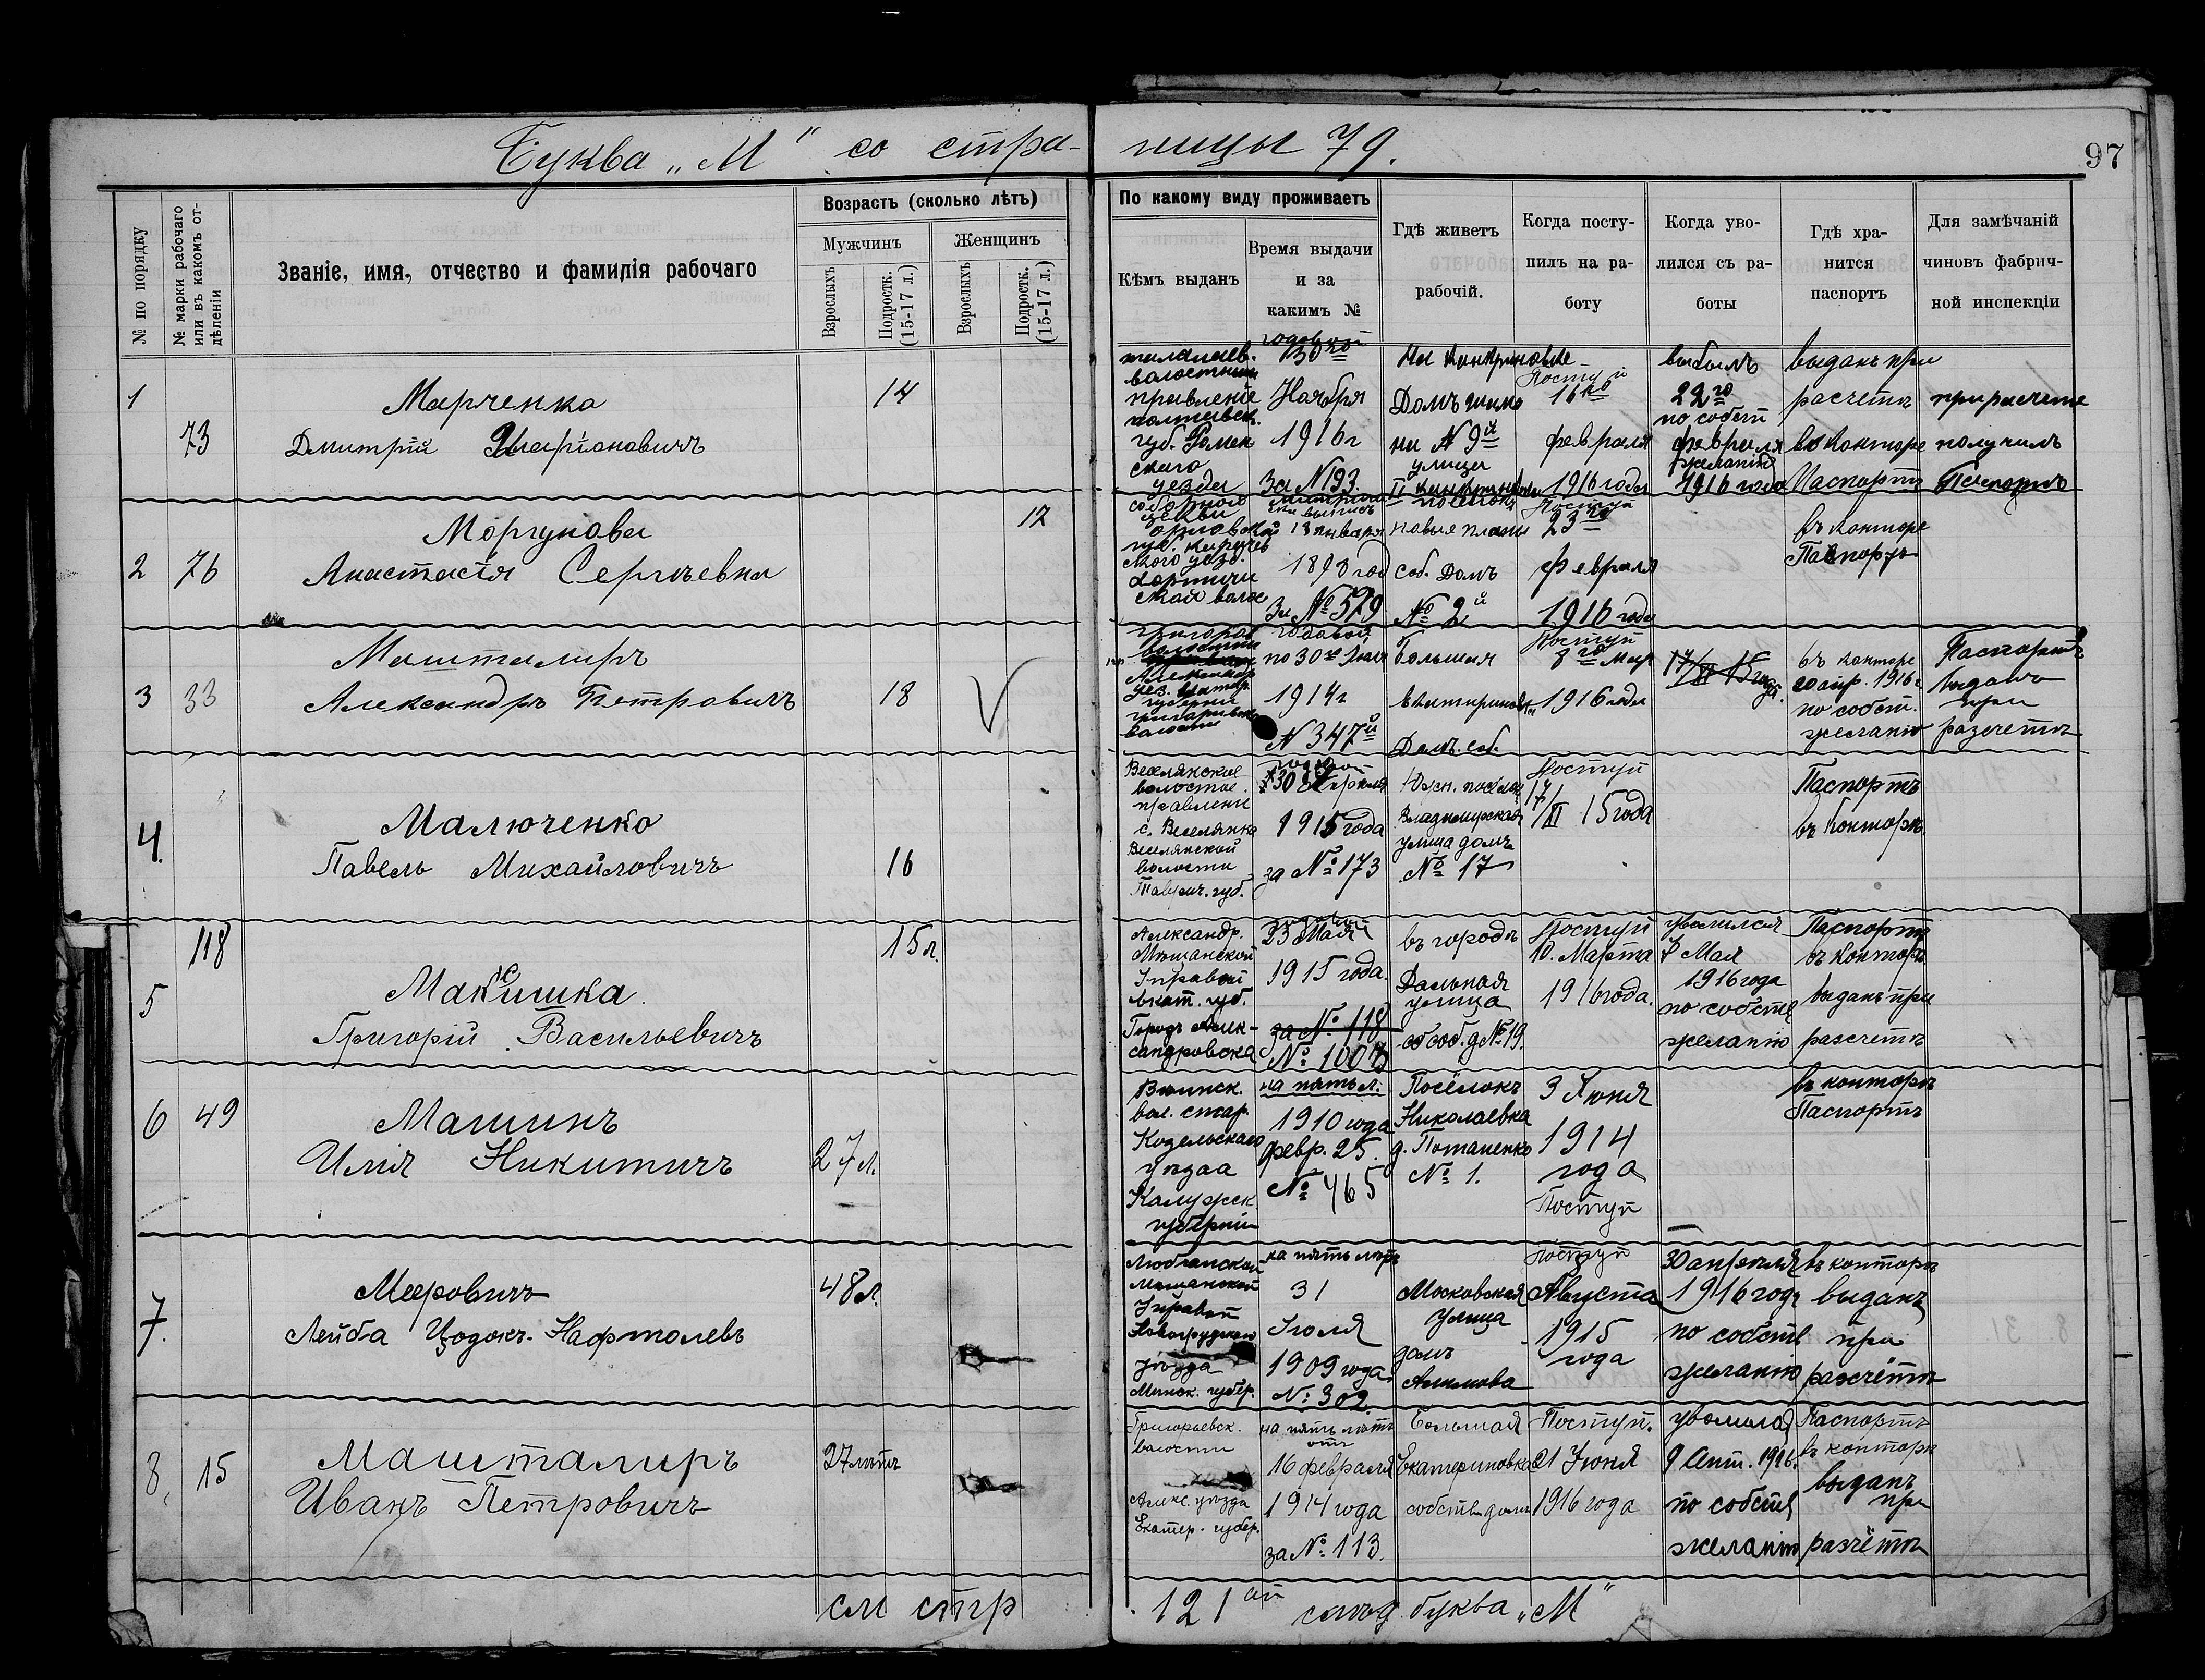 Буква „М" со стра- ницы 79.
97
№ по порядку
№ марки рабочаго или въ какомъ от-дѣленіи
Званіе, имя, отчество и фамилія рабочаго
Возрастъ (сколько лѣтъ)
Мужчинъ
Женщинъ
Взрослыхъ
Подростк. (15-17 л.)
Взрослыхъ
Подростк. (15-17 л.)
По какому виду проживаетъ
Кѣмъ выданъ
Время выдачи
и за
какимъ №
Гдѣ живетъ
рабочій.
Когда посту-
пилъ на ра-
боту
Когда уво-
лился съ ра-
боты
Гдѣ хра-
нится
паспортъ
Для замѣчаній
чиновъ фабрич-
ной инспекціи
1
73
Марченко
Дмитрій
14
волостным
правленіе
губ. Ромен
скаго
уезда
годовой
Ноября
1916 г
За N 193.
Домъ
на N 9й
улица
Поступ
16го
февраля
1916 года
выбылъ
22го
по собст
февраля
желанію
1916 года
выданъ при
расчетъ
въ Конторе
Паспортъ
при расчете
получилъ
Паспортъ
2
76
Моргунова
Анастасія Сергѣевна
17
соборного
18 января
1898 год
За № 579
новые планы
соб. Домъ
№ 2й
Поступ
23го
Февраля
1916 года
въ конторе
Паспортъ
3
33
Машталиръ
Александръ Петровичъ
18
губерніи
волости
годовой
по 30го Июля
1914 г
N 347й
большая
Домъ. соб.
Поступ
8го Мар
1916 года
17/XI 15 года.
въ конторе
20 апр. 1916 г
по собст.
желанію
Паспортъ
Выданъ
при
разчетъ
4.
Малюченко
Павелъ Михайловичъ
16
Веселянское
волостное
правленіе
с. Веселянка
Веселянской
волости
Таврич. губ.
годовой
30 Апреля
1915 года
за № 173
Южн. посёлок
Владимирская
улица домъ
№ 17
Поступ
17/XI 15 года
Паспортъ
въ Конторѣ
5
118
Макишка
Григорій Васильевичъ
15 л.
Александр.
Мѣщанской
Управой
Екат. губ.
Городъ Алек-
сандровска
годовой
23 Май
1915 года.
за № 118
№ 1007
въ городѣ
Дальная
улица
соб. д № 19.
Поступ
10. Марта
1916 года.
уволился
7 Мая
1916 года
по собств
желанію
Паспортъ
въ конторѣ
выданъ при
расчетѣ
6
49
Машинъ
Илія Никитичъ
27 л.
вол. стар.
Козельскаго
уѣзда
Калужск
губерніи
на пять л.
1910 года
февр. 25.
№ 465
Посёлокъ
Николаевка
д. Потапенко
№ 1.
3 Июня
1914
года
Поступ
въ конторѣ
Паспортъ
7.
Мееровичъ
Лейба Цодокъ-Нафтолевъ
48 л.
Любчанской
Мѣщанской
Управой
уѣзда
Минск. губер.
на пять лѣтъ
31
Іюля
1909 года
№ 302.
Московская
Улица
домъ
Поступ
Августа
1915
года
30 апрѣля
1916 года
по собств
желанію
въ конторѣ
выданъ
при
разчётѣ
8,
15
Машталиръ
Иванъ Петровичъ
27 лѣтъ
Григорьевск.
волости
Алекс. уѣзда
Екатер. губер.
на пять лѣтъ
отъ
16 февраля
1914 года
за № 113.
Большая
Екатериновка
собств. домъ
Поступ.
21 Июня
1916 года
уволился
9 Сент. 1916.
по собств
желанію
Паспортъ
въ конторѣ
выданъ
при
разчётѣ
см стр
121
слѣд. буква „М"